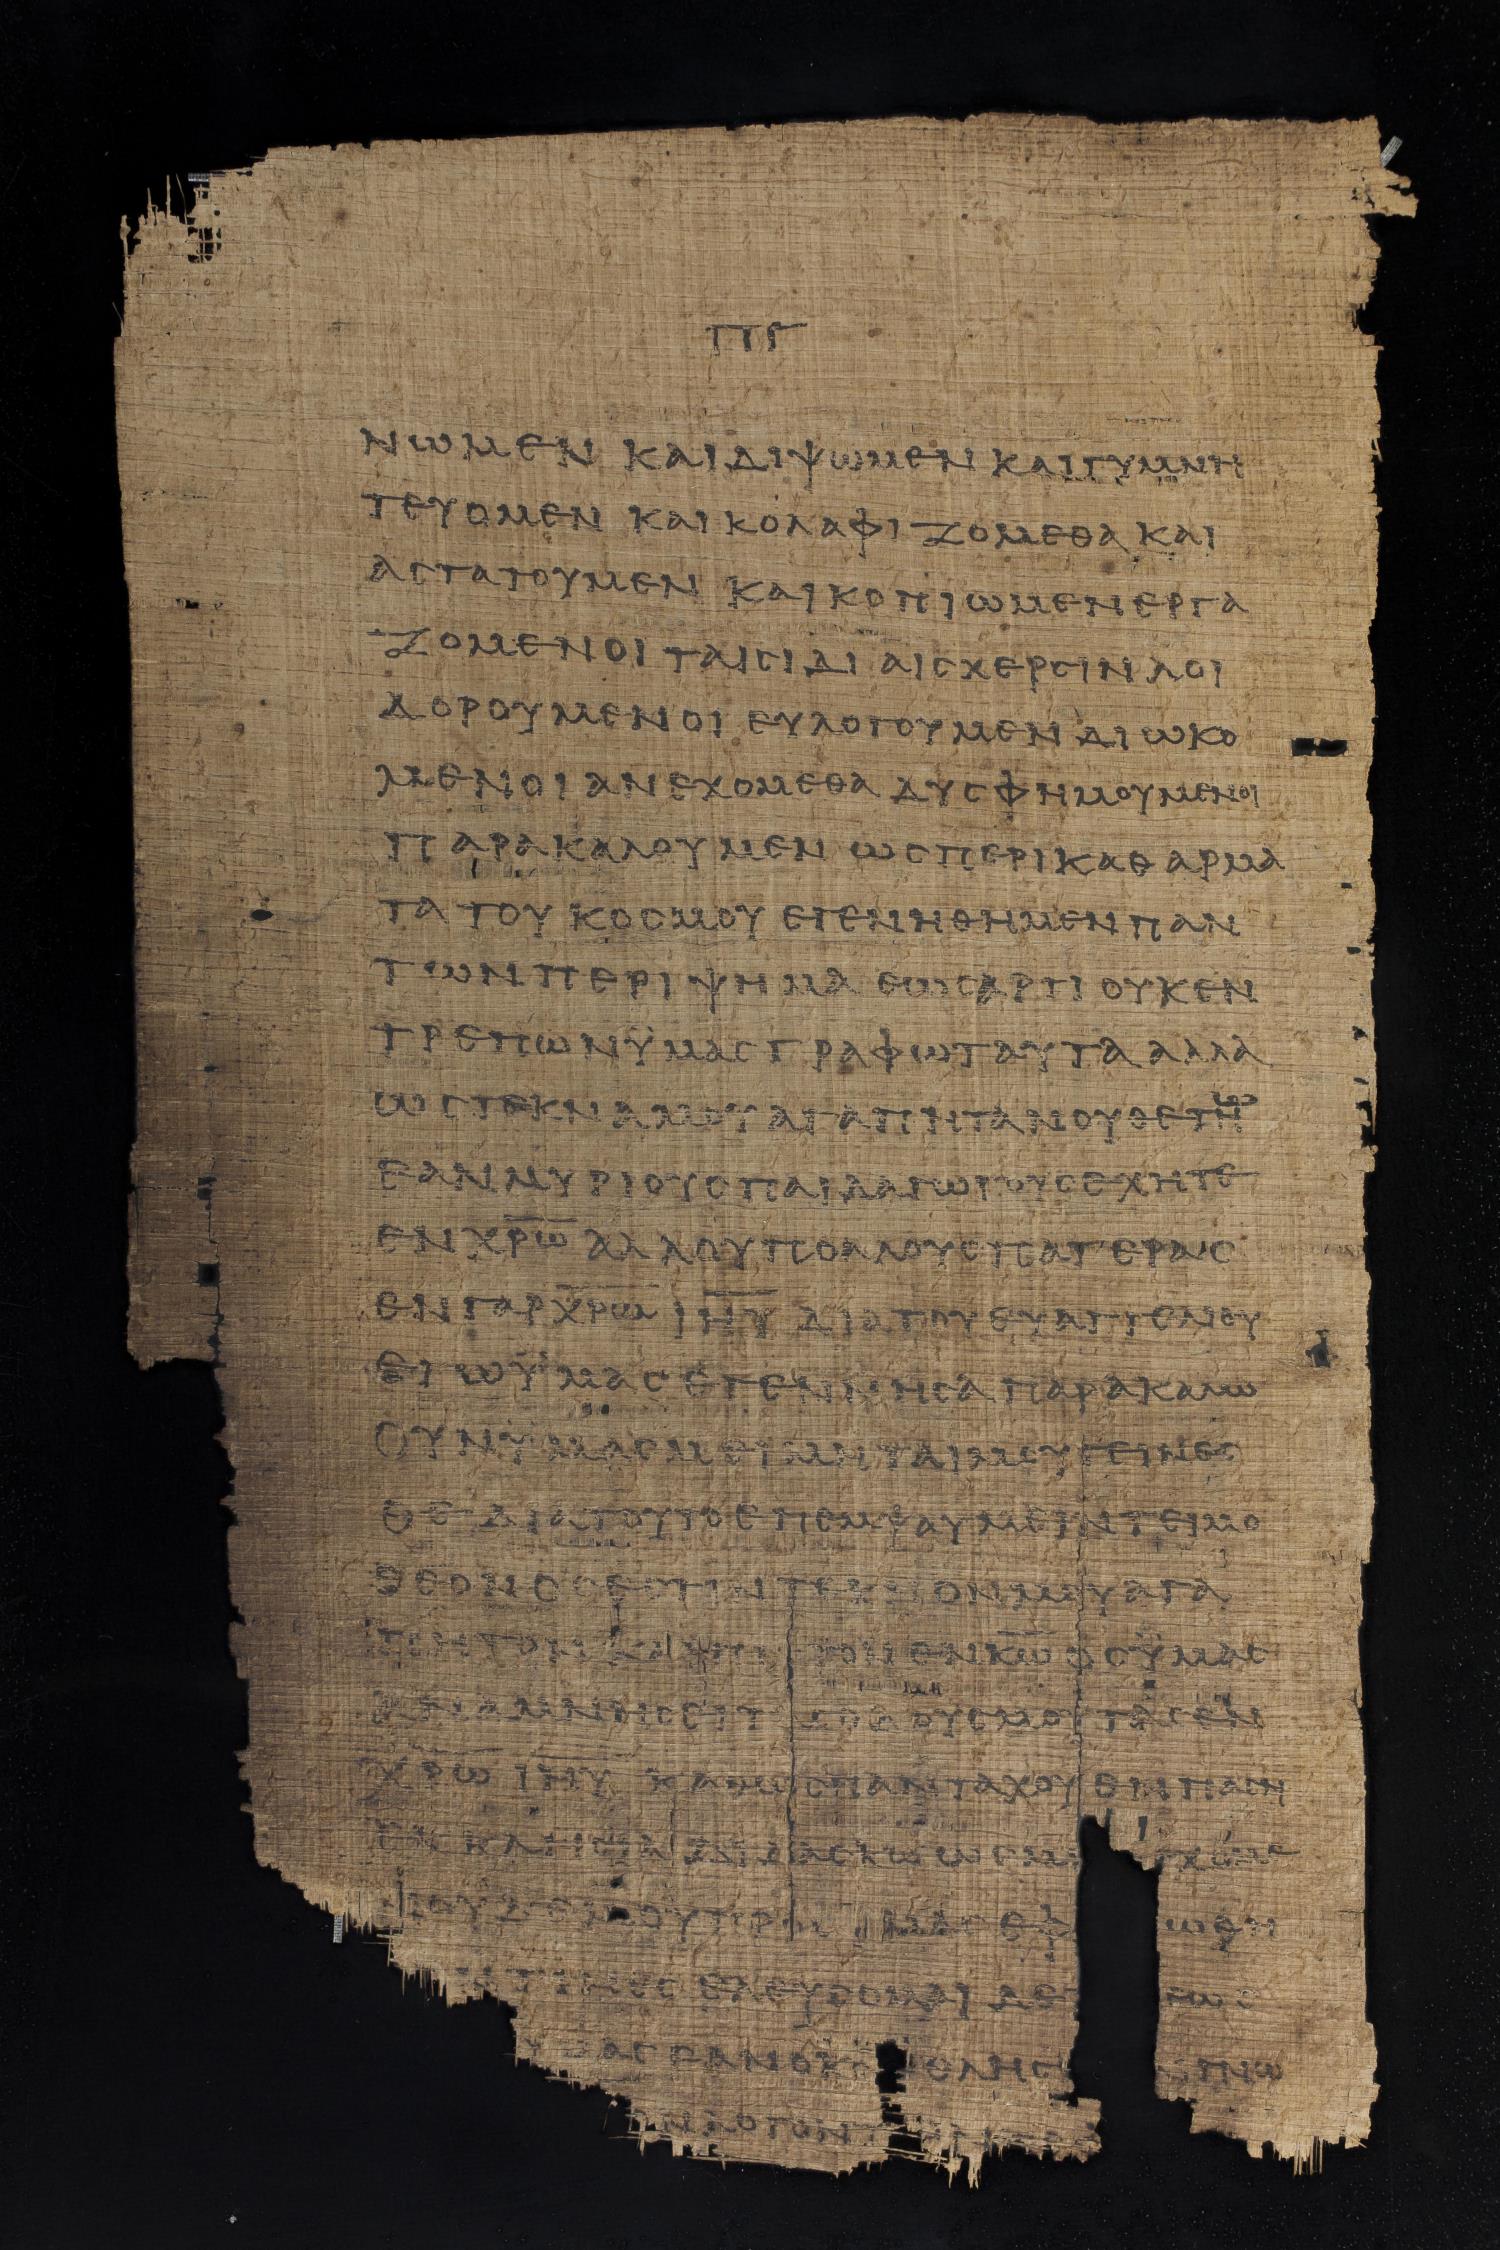 ΠΓ
ΝΩΜΕΝ ΚΑΙ ΔΙΨΩΜΕΝ ΚΑΙ ΓΥΜΝΗ
ΤΕΥΟΜΕΝ ΚΑΙ ΚΟΛΑΦΙΖΟΜΕΘΑ ΚΑΙ
ΑϹΤΑΤΟΥΜΕΝ ΚΑΙ ΚΟΠΙΩΜΕΝ ΕΡΓΑ
ΖΟΜΕΝΟΙ ΤΑΙϹ ΙΔΙΑΙϹ ΧΕΡϹΙΝ ΛΟΙ
ΔΟΡΟΥΜΕΝΟΙ ΕΥΛΟΓΟΥΜΕΝ ΔΙΩΚΟ
ΜΕΝΟΙ ΑΝΕΧΟΜΕΘΑ ΔΥϹΦΗΜΟΥΜΕΝΟΙ
ΠΑΡΑΚΑΛΟΥΜΕΝ ΩϹ ΠΕΡΙΚΑΘΑΡΜΑ
ΤΑ ΤΟΥ ΚΟϹΜΟΥ ΕΓΕΝΗΘΗΜΕΝ ΠΑΝ
ΤΩΝ ΠΕΡΙΨΗΜΑ ΕΩϹ ΑΡΤΙ ΟΥΚ ΕΝ
ΤΡΕΠΩΝ ΫΜΑϹ ΓΡΑΦΩ ΤΑΥΤΑ ΑΛΛΑ
ΩϹ ΤΕΚΝΑ ΜΟΥ ΑΓΑΠΗΤΑ ΝΟΥΘΕΤΩ
ΕΑΝ ΜΥΡΙΟΥϹ ΠΑΙΔΑΓΩΓΟΥϹ ΕΧΗΤΕ
ΕΝ Χ̅Ρ̅Ω̅ ΑΛΛ ΟΥ ΠΟΛΛΟΥϹ ΠΑΤΕΡΑϹ
ΕΝ ΓΑΡ Χ̅Ρ̅Ω̅ Ι̅Η̅Υ̅ ΔΙΑ ΤΟΥ ΕΥΑΓΓΕΛΙΟΥ
ΕΓΩ ΫΜΑϹ ΕΓΕΝΝΗϹΑ ΠΑΡΑΚΑΛΩ
ΟΥΝ ΫΜΑϹ ΜΙΜΗΤΑΙ ΜΟΥ ΓΕΙΝΕϹ
ΘΕ ΔΙΑ ΤΟΥΤΟ ΕΠΕΜΨΑ ΥΜΕΙΝ ΤΕΙΜΟ
ΘΕΟΝ ΟϹ ΕϹΤΙΝ ΤΕΚΝΟΝ ΜΟΥ ΑΓΑ
ΠΗΤΟΝ ΚΑΙ ΠΙϹΤΟΝ ΕΝ Κ̅Ω̅ ΟϹ ΫΜΑϹ
ΑΝΑΜΝΗϹΕΙ Τ ΟΔΟΥϹ ΜΟΥ ΤΑϹ ΕΝ
Χ̅Ρ̅Ω̅ Ι̅Η̅Υ̅ ΚΑΘΩϹ ΠΑΝΤΑΧΟΥ ΕΝ ΠΑϹΗ
ΕΚΚΛΗϹΙΑ ΔΙΔΑϹΚΩ ΩϹ ΜΗ
ΜΟΥ
ΤΙΝΕϹ ΕΛΕΥϹΟΜΑΙ ΔΕ ΤΑΧΕΩϹ
ΥΜΑϹ ΕΑΝ Ο ΓΝΩ
ΛΟΓΟΝ Τ